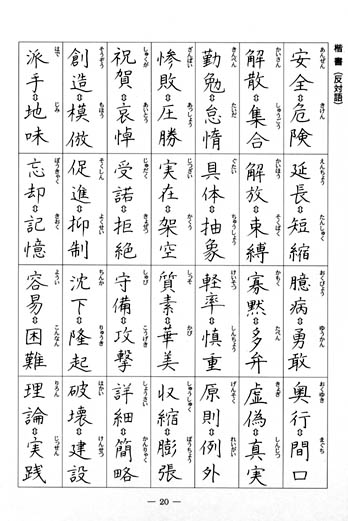 楷書(反対語)
あんぜん きけん えんちょう たんしゅく おくびょう ゆうかん おくゆき まぐち
安全⇔危険 延長⇔短縮 臆病⇔勇敢 奥行⇔間口
かいさん しゅうごう かいほう そくばく かもく たべん きょぎ しんじつ
解散⇔集合 解放⇔束縛 寡黙⇔多弁 虚偽⇔真実
きんべん たいだ ぐたい ちゅうしょう けいそつ しんちょう げんそく れいがい
勤勉⇔怠惰 具体⇔抽象 軽率⇔慎重 原則⇔例外
ざんぱい あっしょう じつざい かくう しっそ かび しゅうしゅく ぼうちょう
惨敗⇔圧勝 実在⇔架空 質素⇔華美 収縮⇔膨張
しゅくが あいとう じゅだく きょぜつ しゅび こうげき しょうさい かんりゃく
祝賀⇔哀悼 受諾⇔拒絶 守備⇔攻撃 詳細⇔簡略
そうぞう もほう そくしん よくせい ちんか りゅうき はかい けんせつ
創造⇔模倣 促進⇔抑制 沈下⇔隆起 破壊⇔建設
はで じみ ぼうきゃく きおく ようい こんなん りろん じっせん
派手⇔地味 忘却⇔記憶 容易⇔困難 理論⇔実践
— 20 —